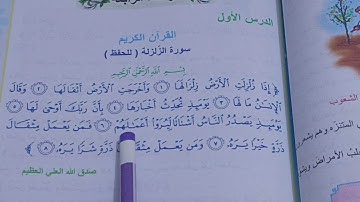 الدرس الأول
القرآن الكريم
سورة الزلزلة ( للحفظ )
بِسْمِ اللَّهِ الرَّحْمَٰنِ الرَّحِيمِ
﴿ إِذَا زُلْزِلَتِ الْأَرْضُ زِلْزَالَهَا ١ وَأَخْرَجَتِ الْأَرْضُ أَثْقَالَهَا ٢ وَقَالَ
الْإِنسَٰنُ مَا لَهَا ٣ يَوْمَئِذٍ تُحَدِّثُ أَخْبَارَهَا ٤ بِأَنَّ رَبَّكَ أَوْحَىٰ لَهَا ٥
يَوْمَئِذٍ يَصْدُرُ النَّاسُ أَشْتَاتًا لِّيُرَوْا أَعْمَٰلَهُمْ ٦ فَمَن يَعْمَلْ مِثْقَالَ
ذَرَّةٍ خَيْرًا يَرَهُ ٧ وَمَن يَعْمَلْ مِثْقَالَ ذَرَّةٍ شَرًّا يَرَهُ ٨ ﴾
صدق الله العلي العظيم
الشعوب
المتنزه وهم يشعرو
الأمراض